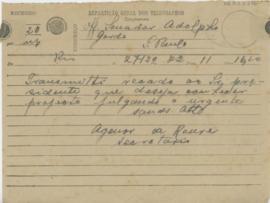 REPARTIÇÃO GERAL DOS TELEGRAPHOS
Senador Adolpho
Gordo
S. Paulo
Rio 27120 72 11
Transmitto recado do Sr. pre-
sidente que deseja conhecer
projecto julgando o urgente
Sauds. Atto
Agenor de Roure
Secretario